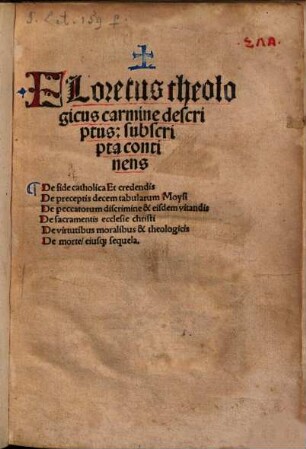 S. Lit. 159 f.
ΣΛΑ.
FLoretus theolo
gicus carmine descri
ptus: subscri
pta conti
nens
¶ De fide catholica Et credendis
De preceptis decem tabularum Moysi
De peccatorum discrimine & eisdem vitandis
De sacramentis ecclesie christi
De virtutibus moralibus & theologicis
De morte/ eiusqꝫ sequela.